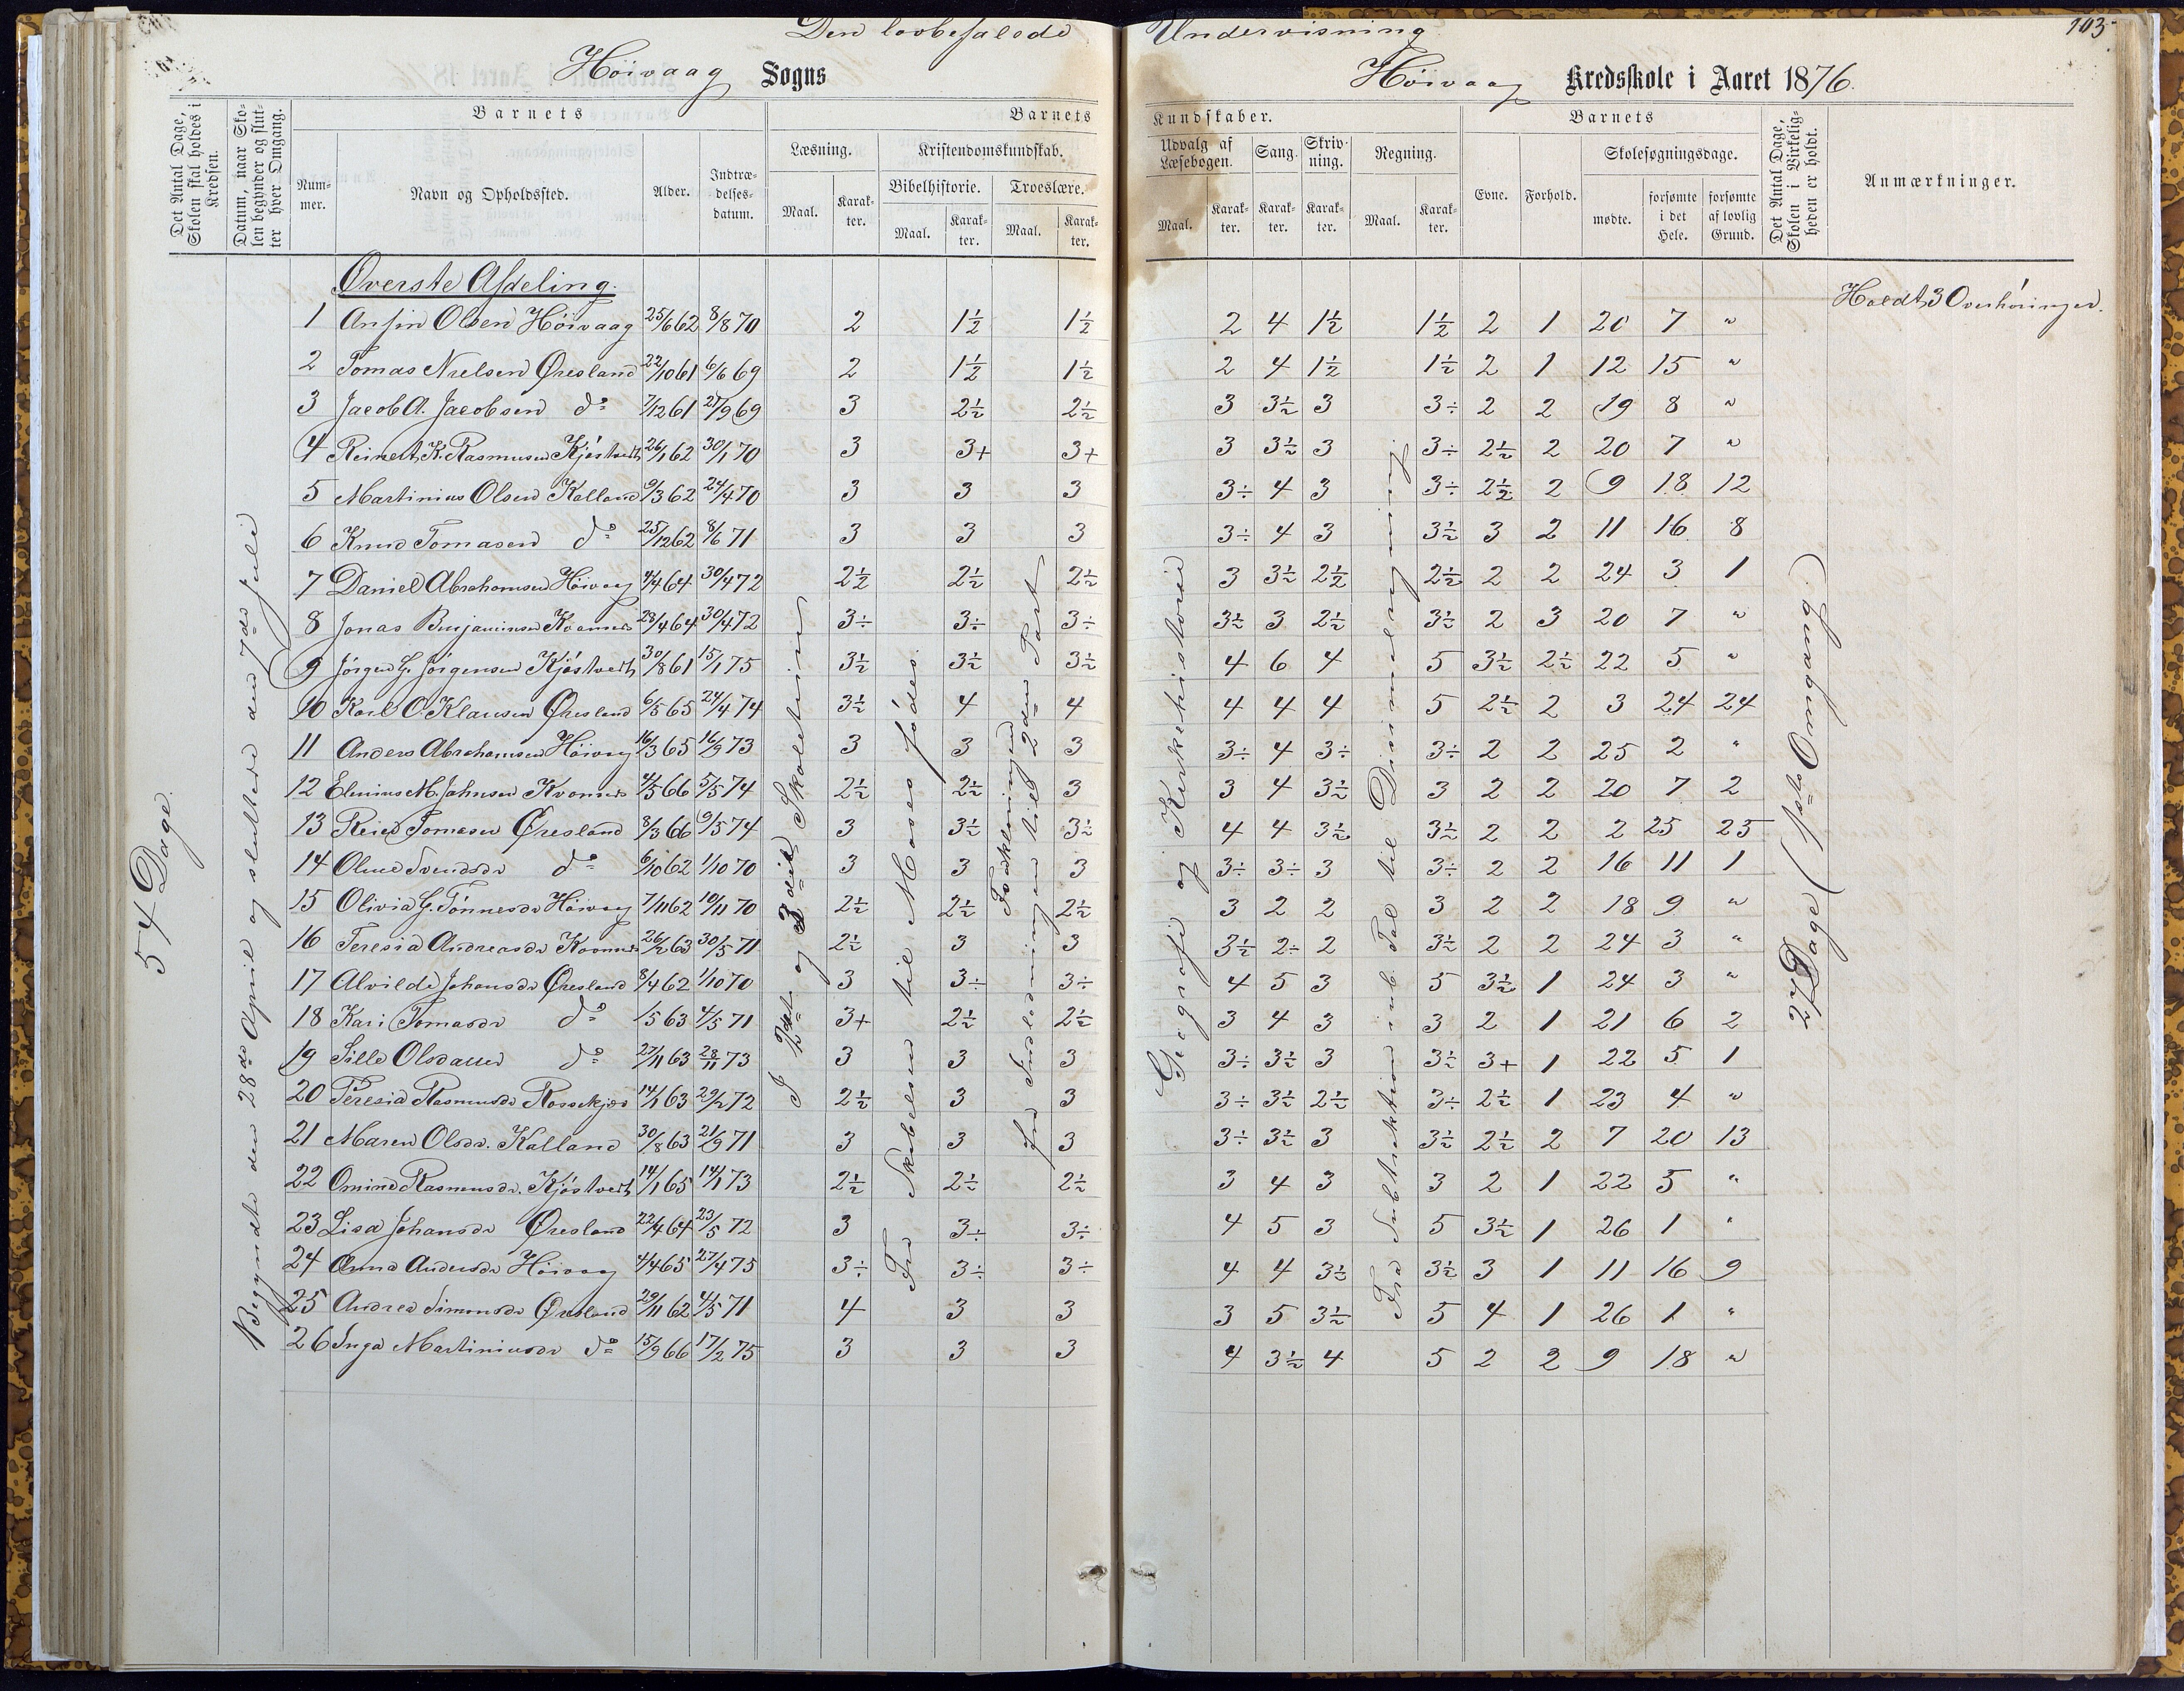 Den lovbefalede Undervisning
103
Høivaag Sogns Høivaag Kredsskole i Aaret 1876.
Det Antal Dage, Skolen skal holdes i Kredsen.
Datum, naar Skolen begynder og slutter hver Omgang.
Barnets
Barnets Kundskaber.
Barnets
Det Antal Dage, Skolen i Virkeligheden er holdt.
Anmærkninger.
Nummer. Navn og Opholdssted. Alder. Indtrædelsesdatum.
Læsning. Kristendomskundskab. Udvalg af Læsebogen. Sang. Skrivning. Regning. Evne. Forhold. Skolesøgningsdage.
Bibelhistorie. Troeslære.
Maal. Karakter. Maal. Karakter. Maal. Karakter. Maal. Karakter. Karakter. Karakter. Maal. Karakter. mødte. forsømte i det Hele. forsømte af lovlig Grund.
Øverste Afdeling.
Holdt 3 Overhøringer.
1 Anfin Olsen Høivaag 25/6 62 8/8 70 2 1½ 1½ 2 4 1½ 1½ 2 1 20 7 "
2 Tomas Nielsen Øresland 22/10 61 6/6 69 2 1½ 1½ 2 4 1½ 1½ 2 1 12 15 "
3 Jacob A. Jacobsen do 7/12 61 27/9 69 3 2½ 2½ 3 3½ 3 3÷ 2 2 19 8 "
4 Reinert K. Rasmusen Kjøstvedt 26/1 62 30/1 70 3 3+ 3+ 3 3½ 3 3÷ 2½ 2 20 7 "
5 Martinius Olsen Kalland 9/3 62 24/4 70 3 3 3 3÷ 4 3 3÷ 2½ 2 9 18 12
6 Knud Tomasen do 25/12 62 8/6 71 3 3 3 3÷ 4 3 3½ 3 2 11 16 8
7 Daniel Abrahamsen Høivaag 4/4 64 30/4 72 2½ 2½ 2½ 3 3½ 2½ 2½ 2 2 24 3 1
8 Jonas Benjaminsen 28/4 64 30/4 72 3÷ 3÷ 3÷ 3½ 3 2½ 3½ 2 3 20 7 "
9 Jørgen G. Jørgensen Kjøstvedt 30/8 61 15/1 75 3½ 3½ 3½ 4 6 4 5 3½ 2½ 22 5 "
10 Karl O. Klausen Øresland 6/5 65 24/4 74 3½ 4 4 4 4 4 5 2½ 2 3 24 24
11 Anders Abrahamsen Høivaag 16/3 65 16/9 73 3 3 3 3÷ 4 3÷ 3÷ 2 2 25 2 "
12 Elenius M. Johnsen 4/5 66 5/5 74 2½ 2½ 3 3 4 3½ 3 2 2 20 7 2
13 Reier Tomasen Øresland 8/3 66 9/5 74 3 3½ 3½ 4 4 3½ 3½ 2 2 2 25 25
14 Oline Svendsdr do 6/10 62 1/10 70 3 3 3 3÷ 3÷ 3 3÷ 2 2 16 11 1
15 Olivia G. Tønnesdr Høivaag 7/11 62 10/11 70 2½ 2½ 2½ 3 2 2 3 2 2 18 9 "
16 Teresia Andreasdr 26/2 63 30/5 71 2½ 3 3 3½ 2÷ 2 3½ 2 2 24 3 "
17 Alvilde Johansdr Øresland 8/4 62 1/10 70 3 3÷ 3÷ 4 5 3 5 3½ 1 24 3 "
18 Kari Tomasdr do 1/5 63 4/5 71 3+ 2½ 2½ 3 4 3 3 2 1 21 6 2
19 Sille Olsdatter do 27/11 63 28/11 73 3 3 3 3÷ 3½ 3 3½ 3+ 1 22 5 1
20 Teresia Rasmusdr 14/1 63 29/2 72 2½ 3 3 3÷ 3½ 2½ 3÷ 2½ 1 23 4 "
21 Maren Olsdr. Kalland 30/8 63 21/9 71 3 3 3 3÷ 3½ 3 3½ 2½ 2 7 20 13
22 Omine Rasmusdr. Kjøstvedt 14/1 65 14/1 73 2½ 2½ 2½ 3 4 3 3 2 1 22 5 "
23 Lisa Johansdr Øresland 22/4 64 23/5 72 3 3÷ 3÷ 4 5 3 5 3½ 1 26 1 "
24 Anna Andersdr Høivaag 4/4 65 27/4 75 3÷ 3÷ 3÷ 4 4 3½ 3½ 3 1 11 16 9
25 Andrea Simonsdr Øresland 29/11 62 4/5 71 4 3 3 3 5 3½ 5 4 1 26 1 "
26 Inga Martiniusdr do 15/9 66 17/2 75 3 3 3 4 3½ 4 5 2 2 9 18 "
54 Dage.
Begyndte den 28de April og sluttede den 7de Juli
I 2det og 3die Skoletrin
Fra Skabelsen til Moses fødes.
Forklaringen
fra Indledningen til 2den Part
Geografi og Kirkehistorie
Fra Subtraktion inb. Tal til Decimalregning.
27 Dage (1ste Omgang.)